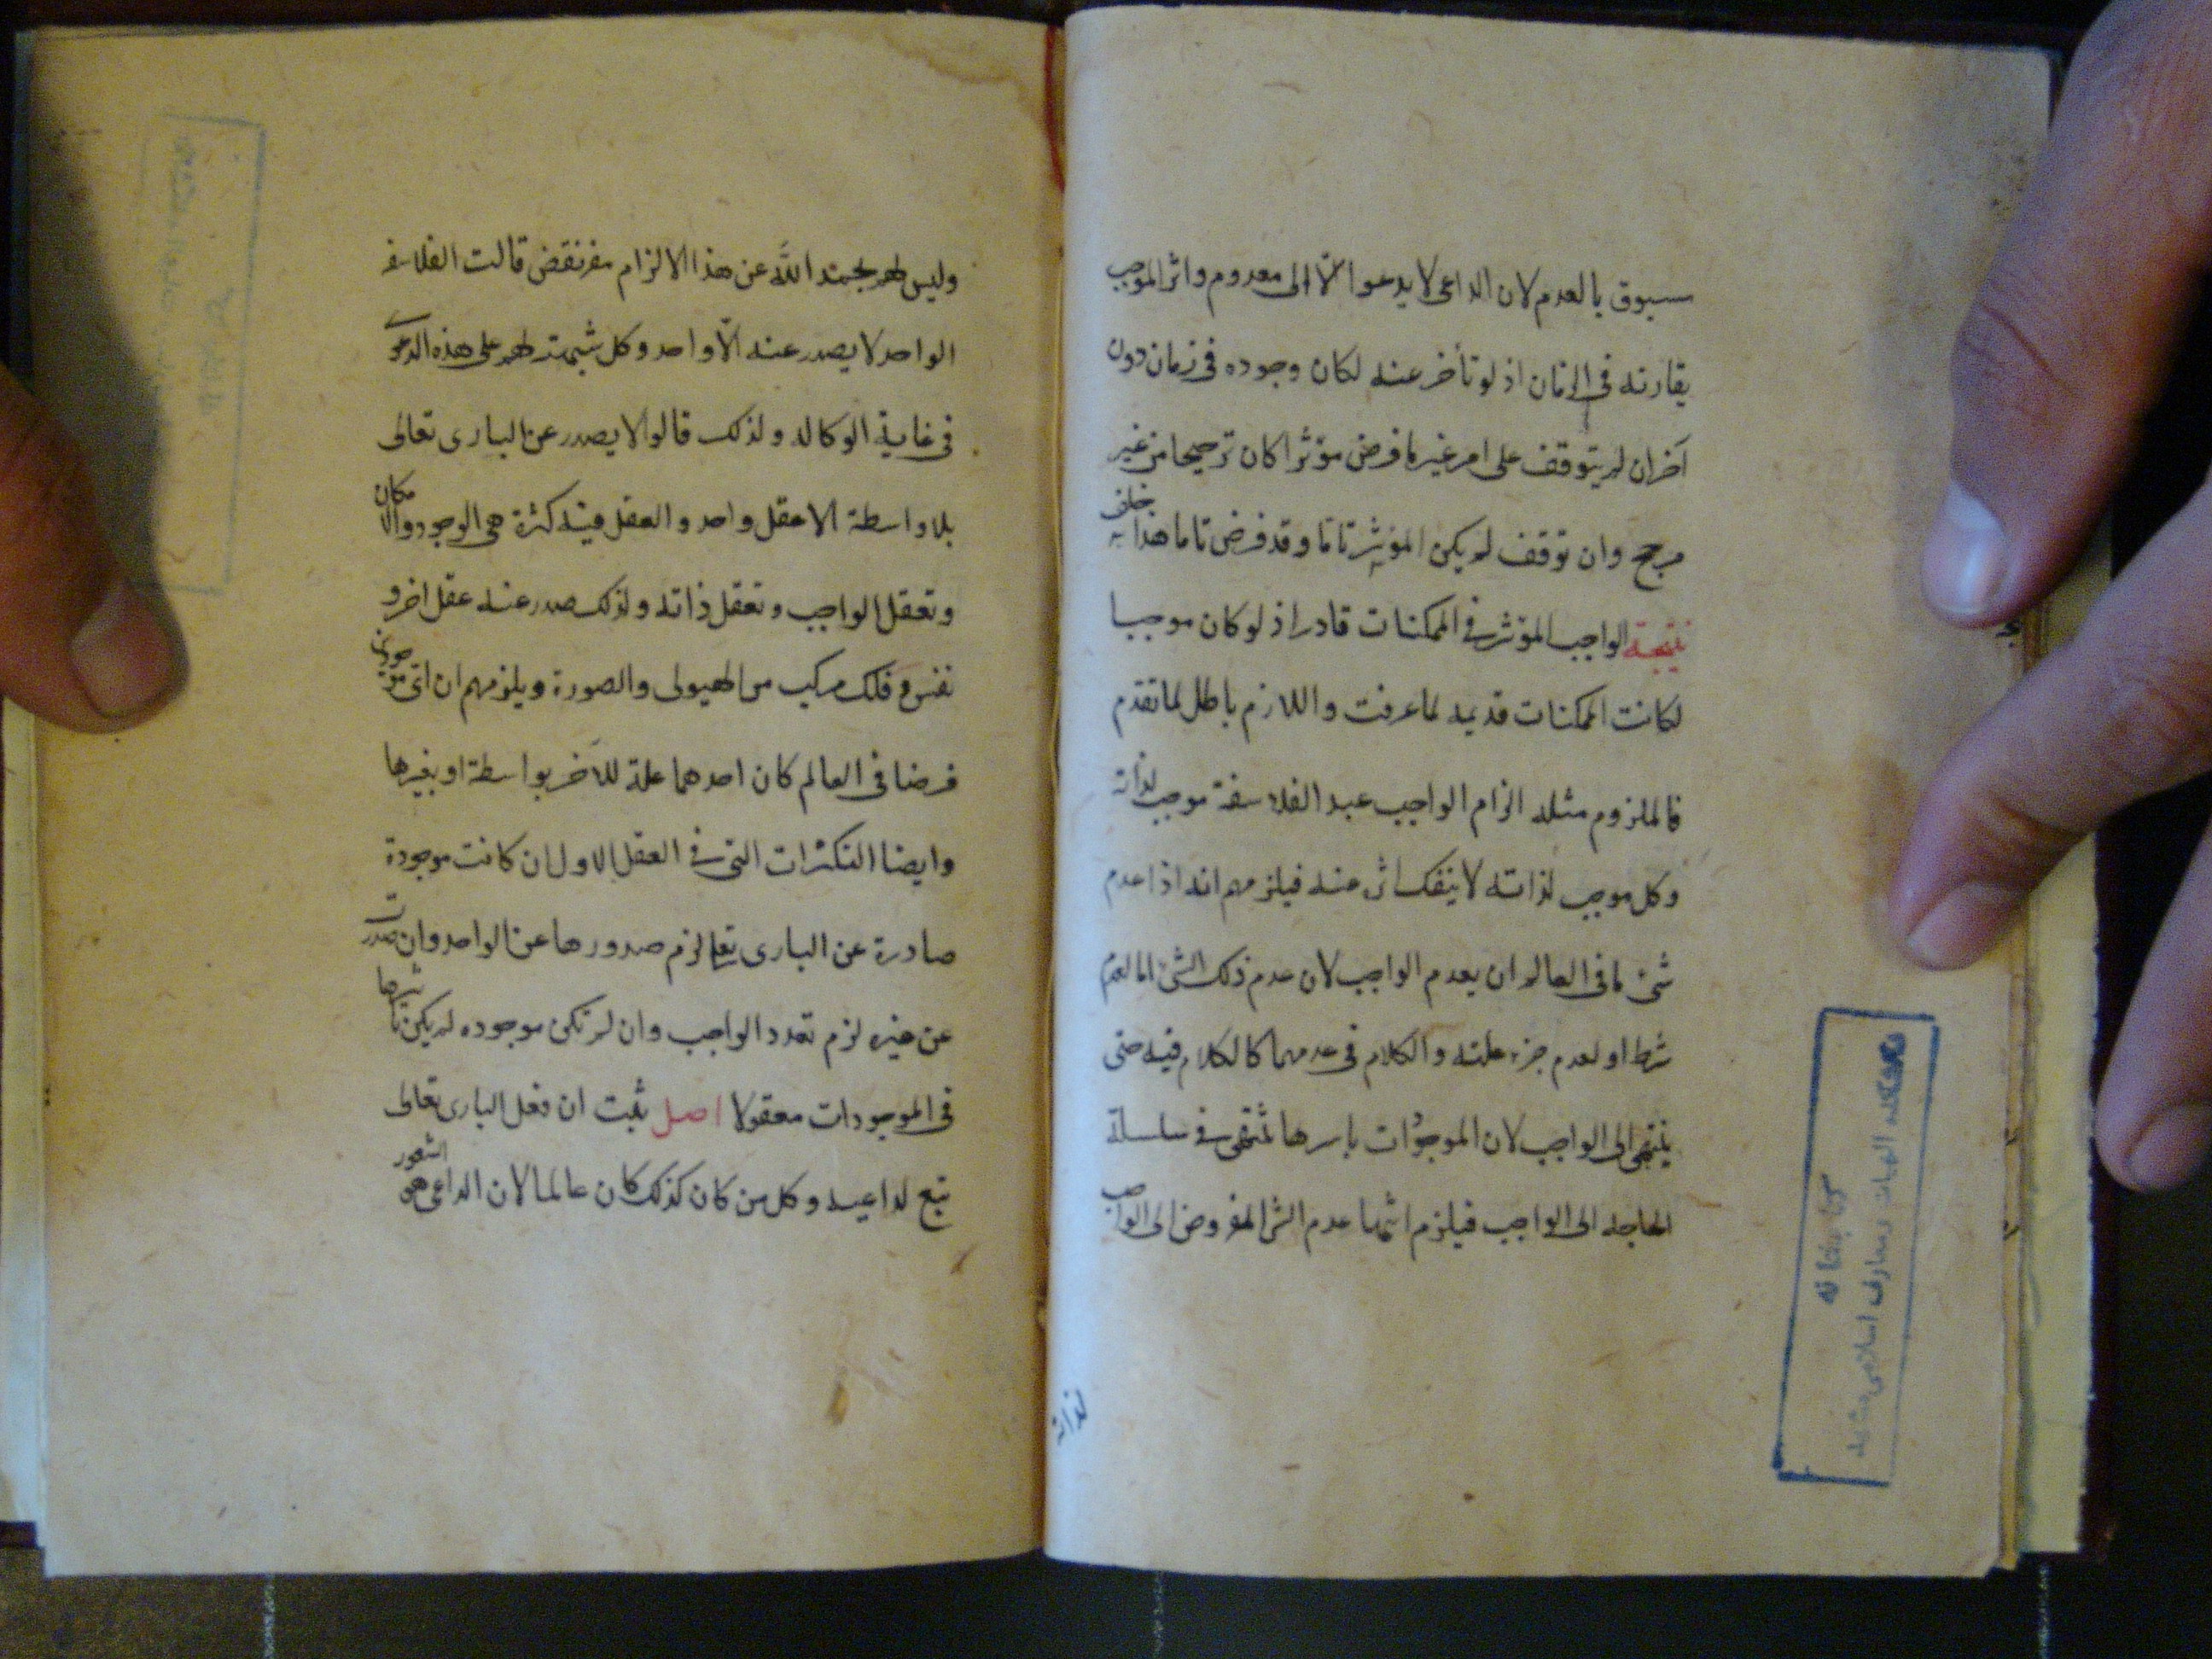 سبوق بالعدم لان الداعى لا يدعوا الّا الى معدوم واثر الموجب
يقارنه فى الزمان اذ لو تأخر عنه لكان وجوده فى زمان دون
آخر ان لم يتوقف على امر غير ما فرض مؤثرا كان ترجيحا من غير
مرجح وان توقف لم يكن المؤثر تاما وقد فرض تاما هذا خلف
نتيجة الواجب المؤثر فى الممكنات قادر اذ لو كان موجبا
لكانت الممكنات قديمه لما عرفت واللازم باطل لما تقدم
فالملزوم مثله الزام الواجب عند الفلاسفة موجب لذاته
وكل موجب لذاته لا ينفك اثره عنه فيلزمهم انه اذا عدم
شئ ما فى العالم ان يعدم الواجب لان عدم ذلك الشئ اما لعدم
شرط او لعدم جزء علته والكلام فى عدمهما كالكلام فيه حتى
ينتهى الى الواجب لان الموجودات باسرها تنتهى فى سلسلة
الحاجه الى الواجب فيلزم انتهاء عدم الشئ المفروض الى الواجب
لذاته
دانشكده الهيات ومعارف اسلامى مشهد
كتابخانه
وليس لهم بحمد اللّه عن هذا الالزام مفر نقض قالت الفلاسفه
الواحد لا يصدر عنه الّا واحد وكل شبهة لهم على هذه الدعوى
فى غاية الوكاله ولذلك قالوا لا يصدر عن البارى تعالى
بلا واسطة الا عقل واحد والعقل فيه كثرة هى الوجود والامكان
وتعقل الواجب وتعقل ذاته ولذلك صدر عنه عقل اخر و
نفس وفلك مركب من الهيولى والصورة ويلزمهم ان اى موجودين
فرضا فى العالم كان احدهما علة للآخر بواسطة او بغيرها
وايضا التكثرات التى فى العقل الاول ان كانت موجودة
صادرة عن البارى تعا لزم صدورها عن الواحد وان صدرت
عن غيره لزم تعدد الواجب وان لم تكن موجوده لم يكن تاثيرها
فى الموجودات معقولا اصل ثبت ان فعل البارى تعالى
تبع لداعيه وكل من كان كذلك كان عالما لان الداعى هو الشعور